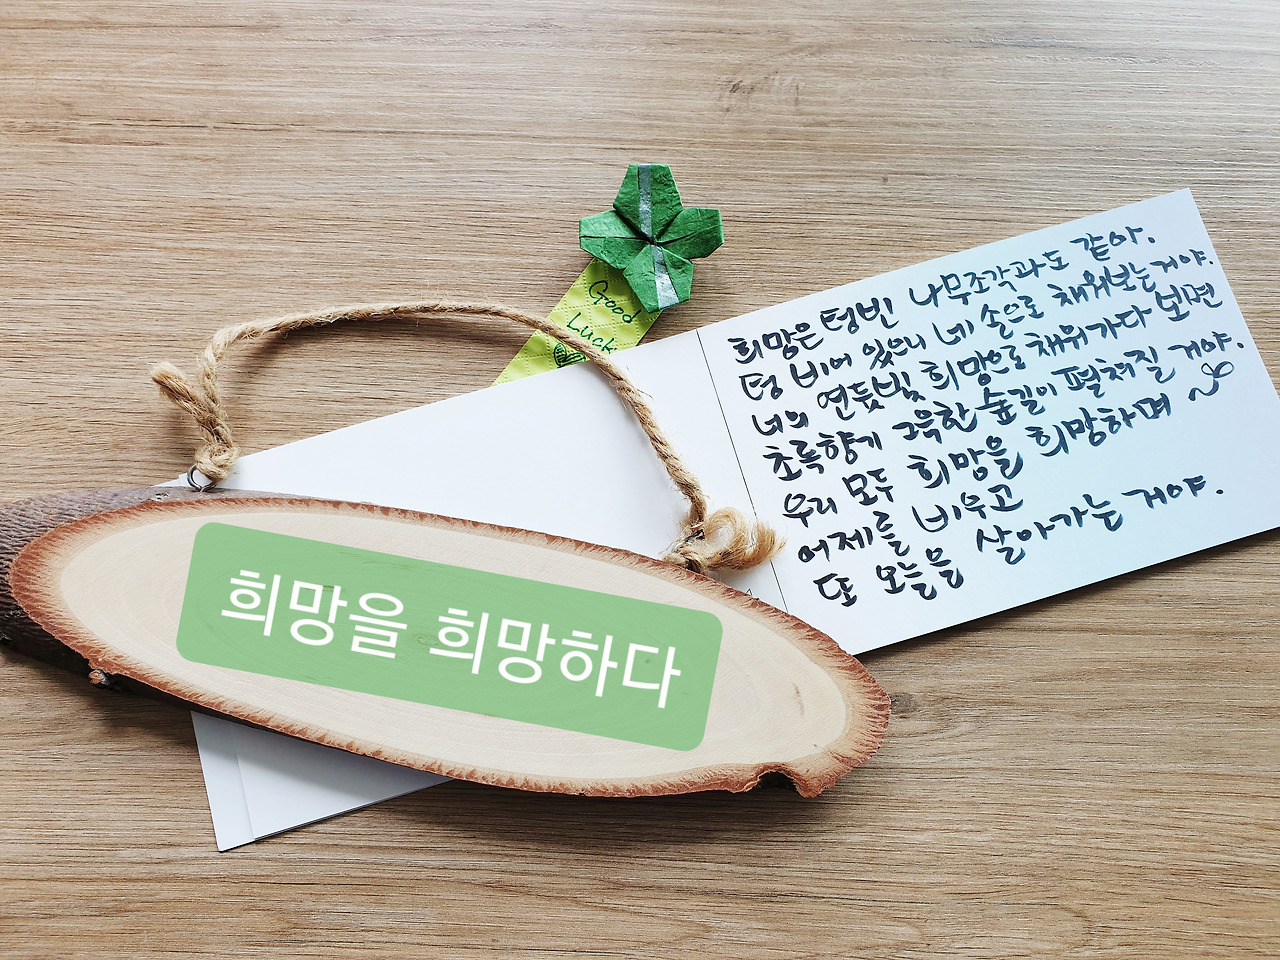 Good
Luck
희망은 텅빈 나무조각과도 같아.
텅 비어 있으니 네 손으로 채워보는거야.
너의 연둣빛 희망으로 채워가다 보면
초록향기 그윽한 숲길이 펼쳐질 거야.
우리 모두 희망을 희망하며
어제를 비우고
또 오늘을 살아가는 거야.
희망을 희망하다